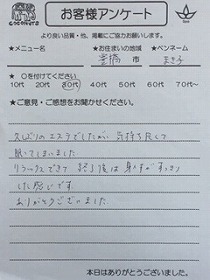 COCONUTS
お客様アンケート
より良い品質・他、掲載にご協力お願いします。
★メニュー名 ★お住まいの地域 ★ペンネーム
豊橋 市 まき子
★○を付けてください
10代 20代 30代 40代 50代 60代 70代~
★ご意見・ご感想をお聞かせください。
久しぶりのエステでしたが、気持ち良くて
眠ってしまいました
リラックスできて 終了後は 身体がすっきり
した感じです
ありがとうございました
本日はありがとうございました。